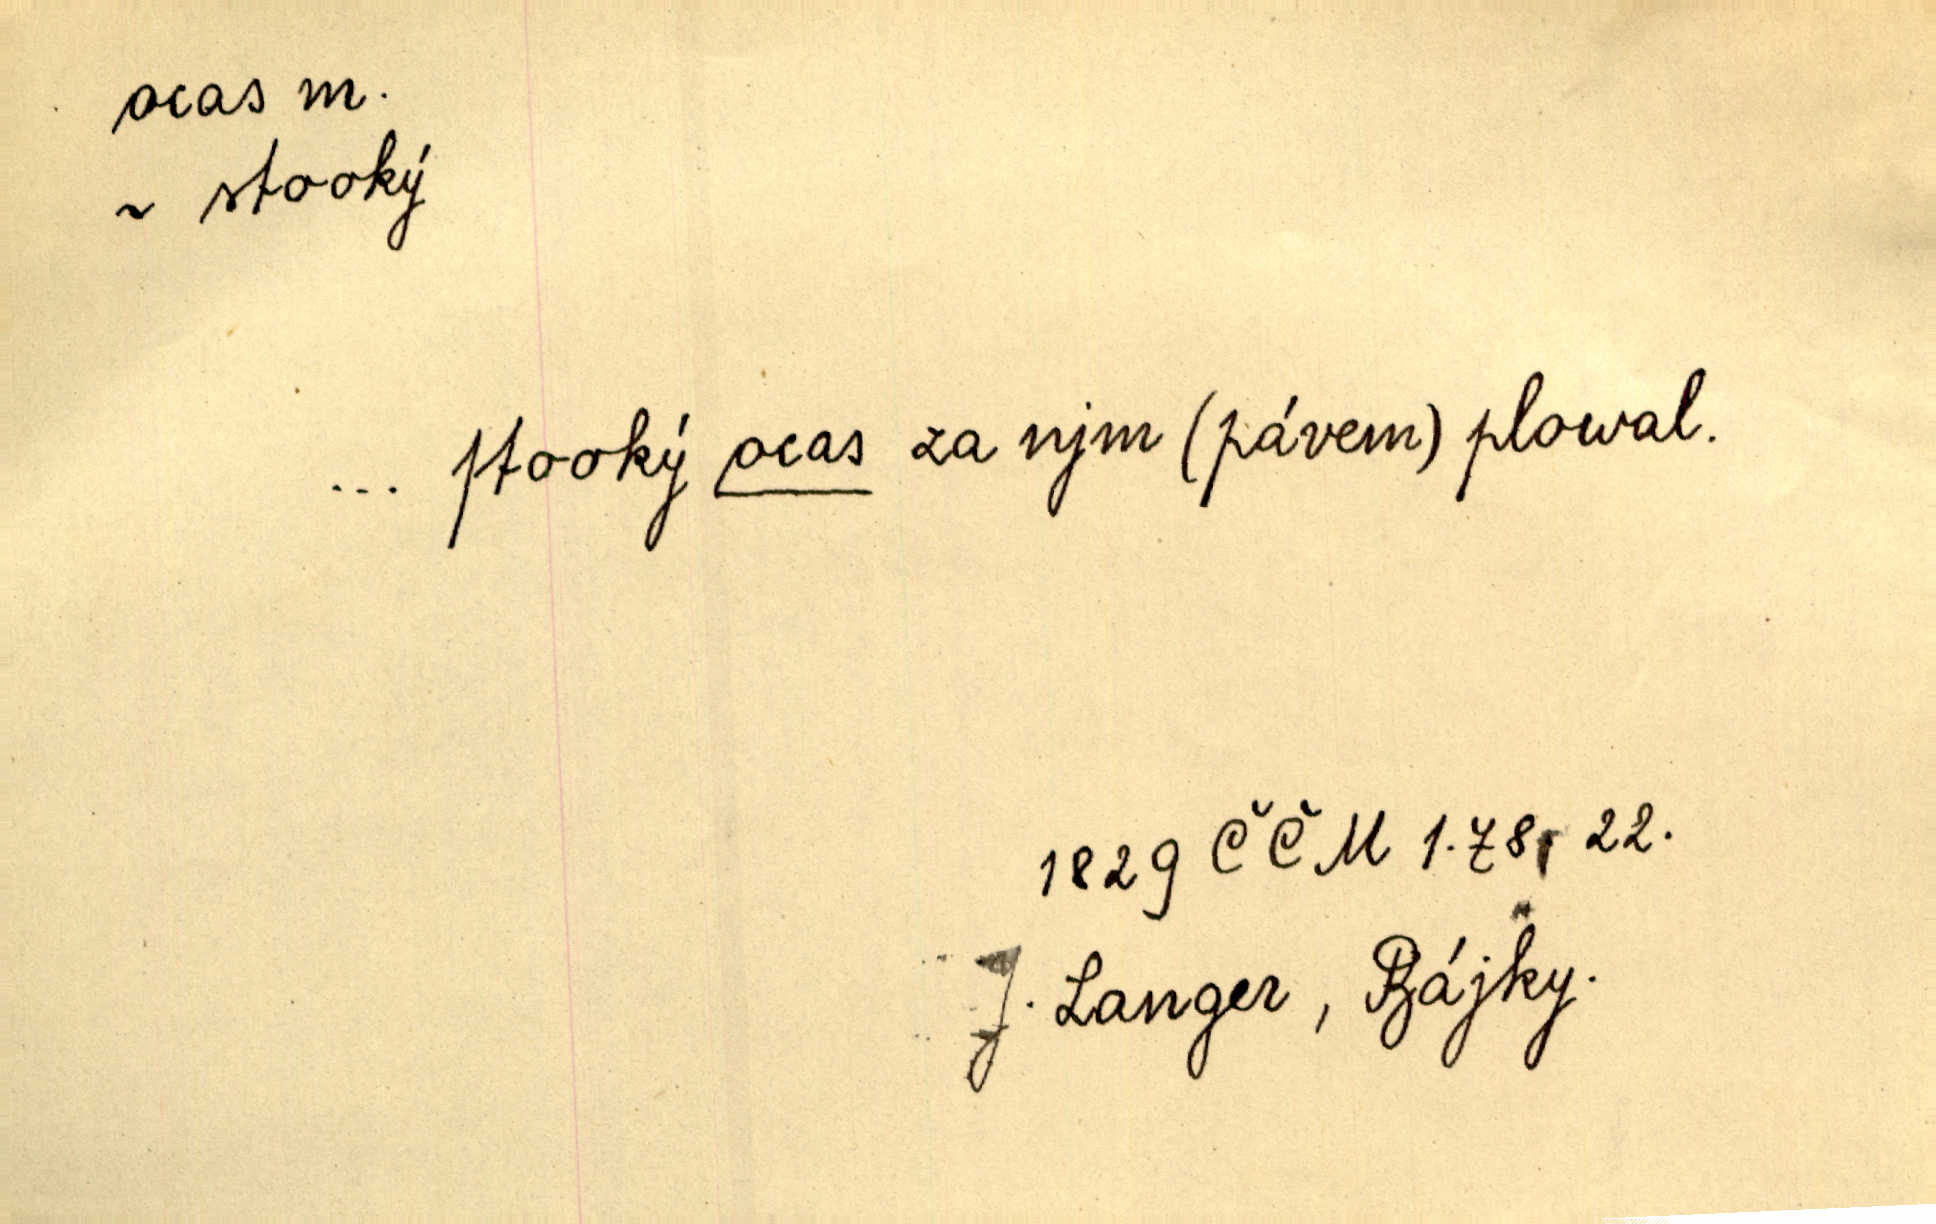 ocas m.
~ stooký
... stooký ocas za njm (pávem) plowal.
1829 ČČM 1.78, 22.
J. Langer, Bájky.